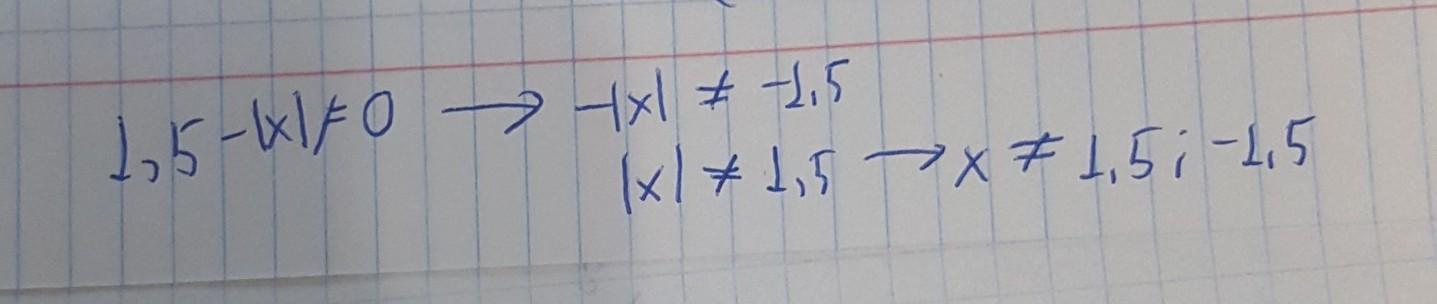 1,5 -|x| ≠ 0 → -|x| ≠ -1,5
|x| ≠ 1,5 → x ≠ 1,5; -1,5